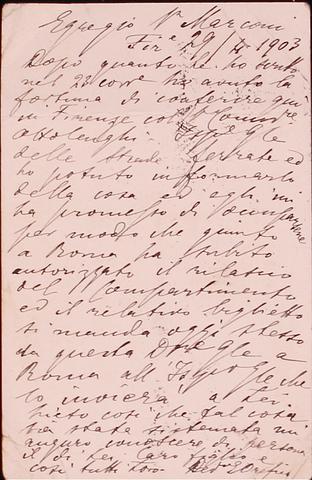 Egregio Sr Marconi
Fire 29/4 1903
Dopo quanto le ho scritto
nel 23 corre ho avuto la
fortuna di conferire qui
in Firenze col Comre
Ottolenghi
delle Strade ferrate ed
ho potuto informarlo
della cosa ed egli mi
ha promesso di
per modo che giunto
a Roma ha subito
autorizzato il relativo
del Compartimento
ed il relativo biglietto
si manda oggi stesso
da questa a
Roma all' che
lo invierà a Lei
cosi che tal cosa
sia stata sistemata mi
auguro conoscere di persona
il di Lei caro figlio e
cosi tutti loro